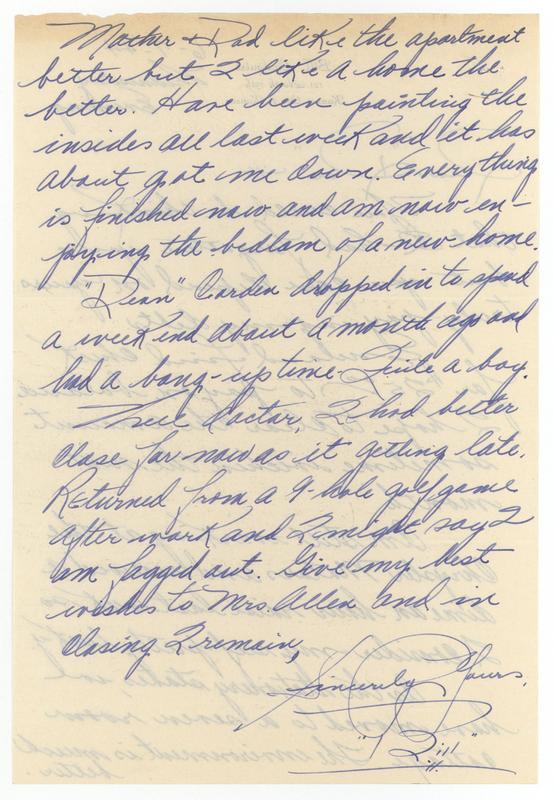 Mother & Dad like the apartment
better but I like a home the
better. Have been painting the
insides all last week and it has
about got me down. Everything
is finished now and am now en-
joying the bedlam of a new home.
"Dean" Carden dropped in to spend
a weekend about a month ago and
had a bang-up time. Quite a boy.
Well doctor, I had better
close for now as it getting late.
Returned from a 9-hole golf game
after work and I might say I
am fagged out. Give my best
wishes to Mrs. Allen and in
closing I remain,
Sincerely Yours,
"Bill"